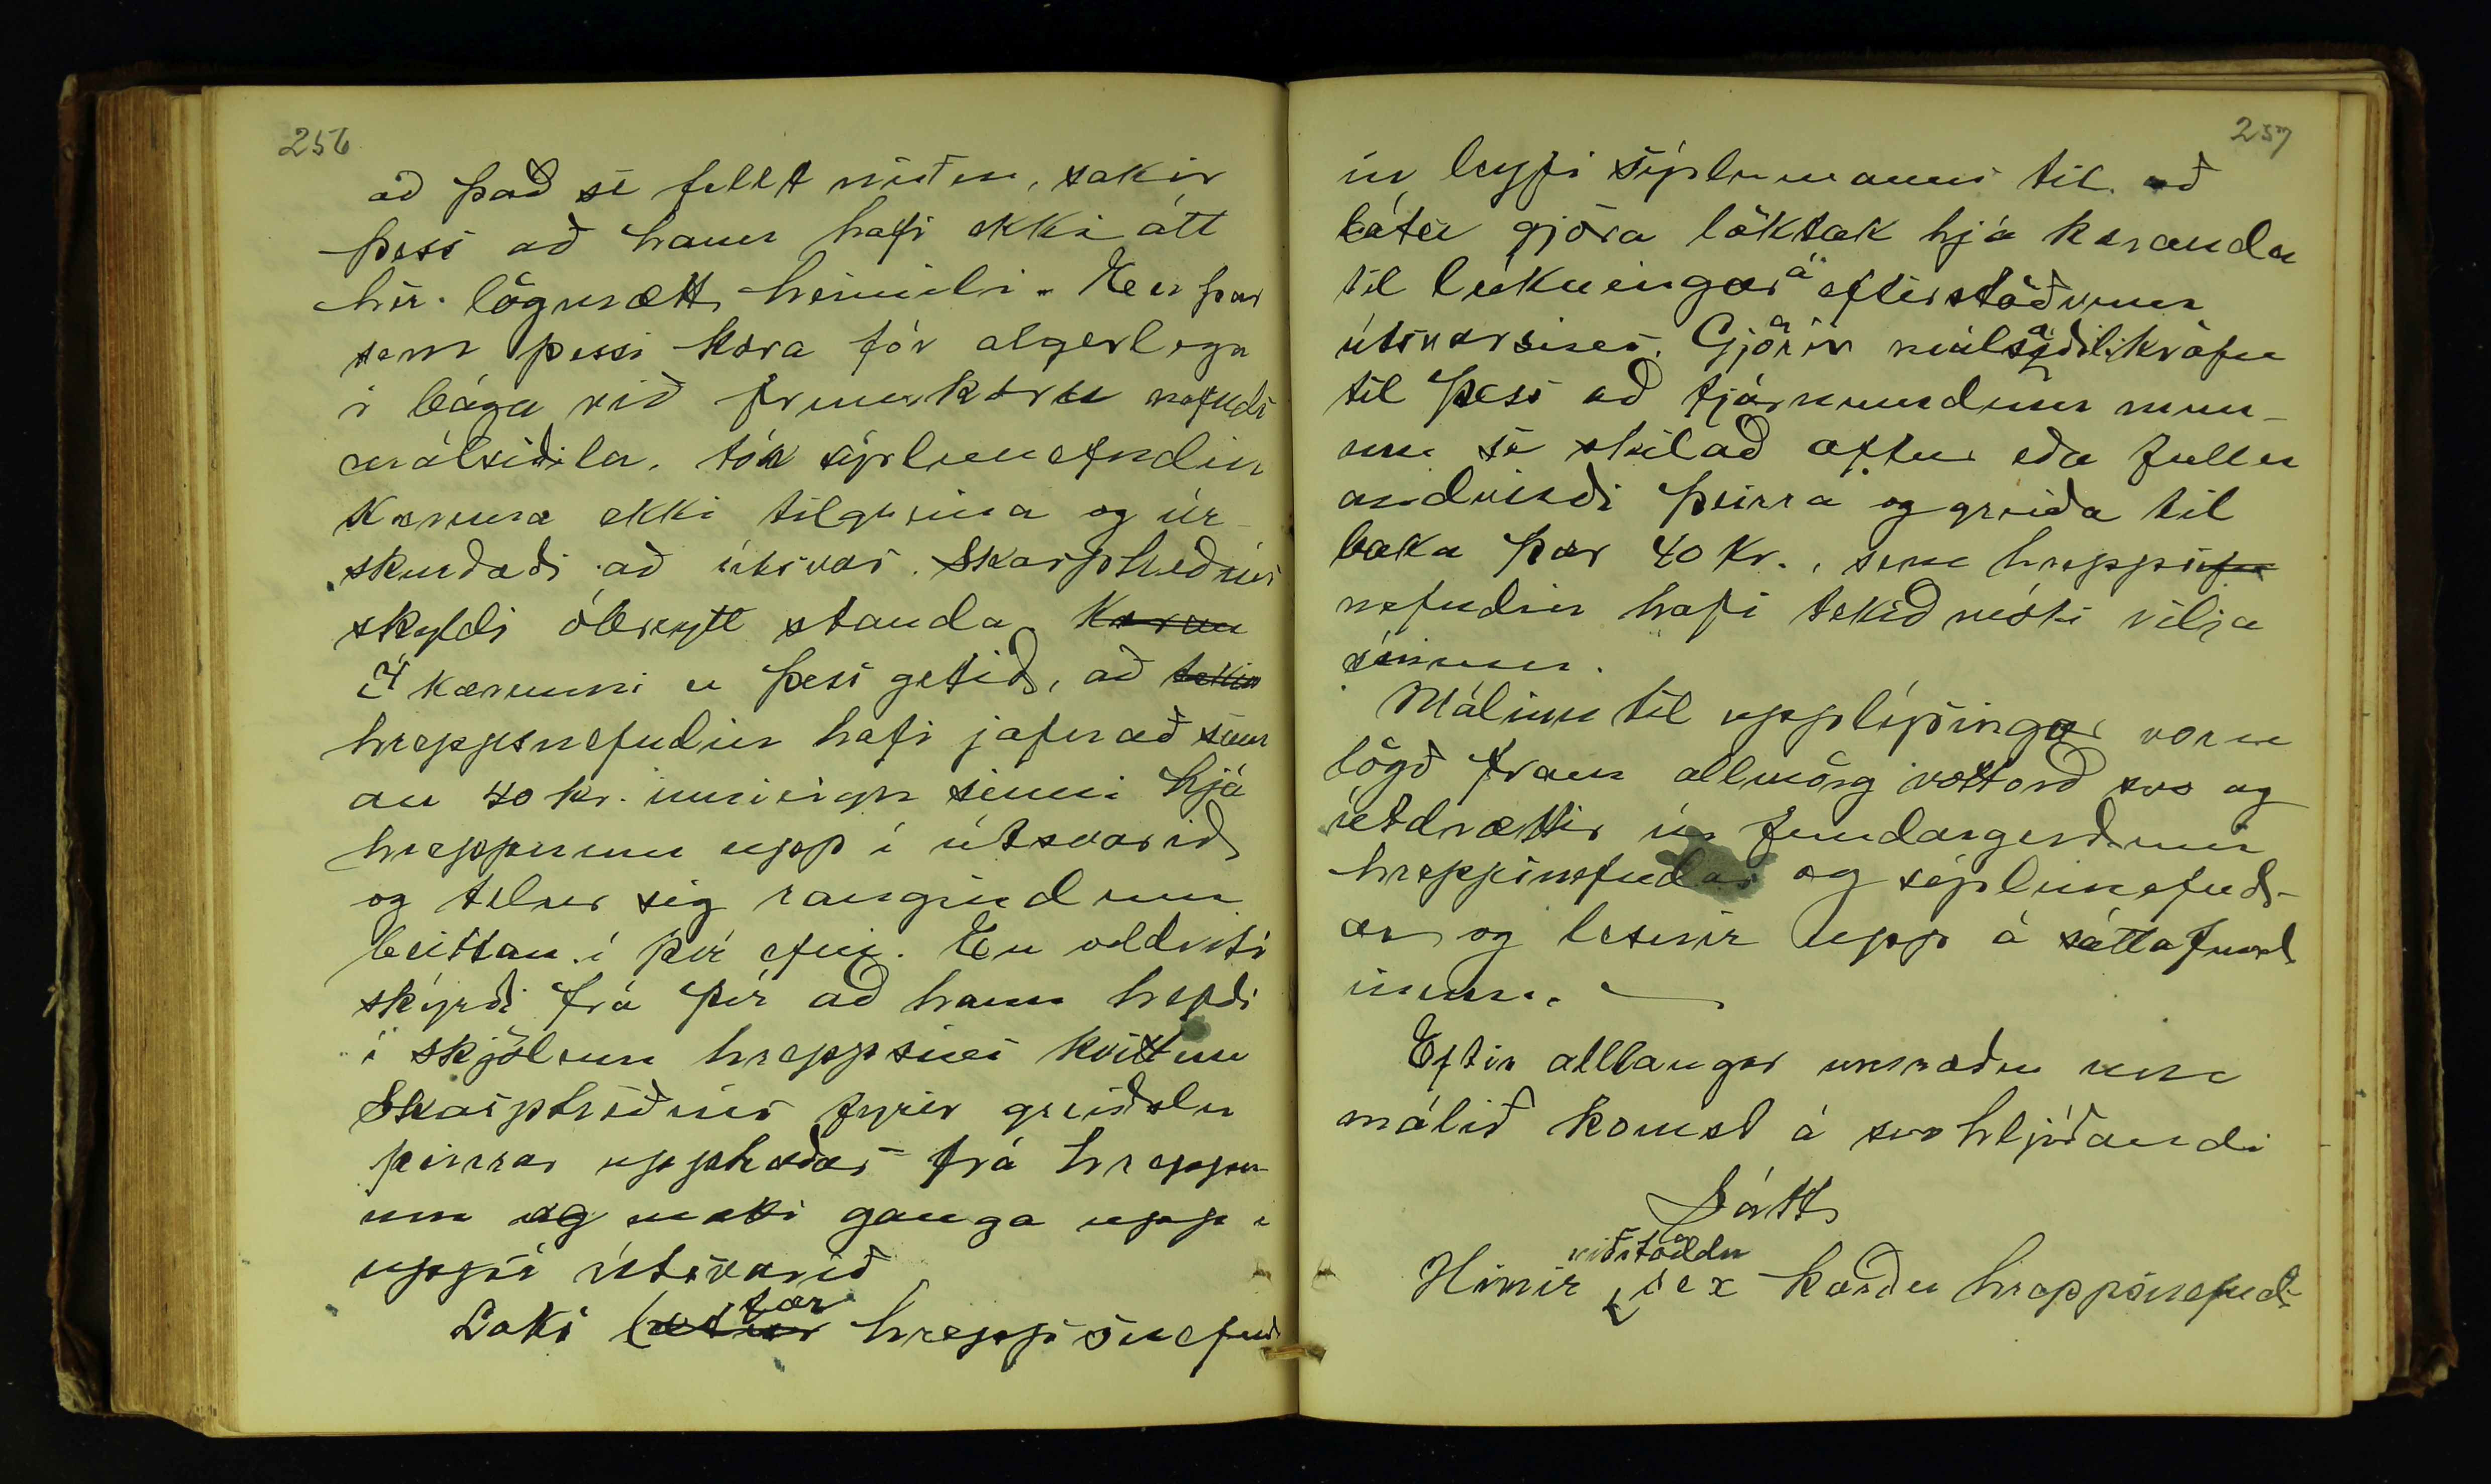 256
að það sé fellt niður, sakir
þess að hann hafi ekki átt
hér lögmætt heimili. En þar
sem þessi kæra fór algerlega
í bága við frumkæru nefnds
málsaðila, tók sýslunefndin
kæruna ekki til greina og úr-
skurðaði að útsvar Skarphéðins
skyldi óbreytt standa. Kæran
Í kærunni er þess getið, að tekin
hreppsnefndin hafi jafnað sum
an 40 kr. inneign sinni hjá
hreppnum upp í útsvarið
og telur sig rangindum
beittan í því efni. En oddviti
skýrði frá því að hann hefði
í skjölum hreppsins kvittun
Skarphéðins fyrir greiðslu
þeirrar upphæðar frá hreppn-
um og mætti ganga upp í
uppí útsvarið
Loks lætur tær hreppsnefnd
257
in leyfi sýslumanns til að
láta gjöra löktak hjá kæranda
til lúkningar á eftirstöðvum
útsvarsins. Gjörir málsaðili kröfu
til þess að fjárnumdum mun-
um sé skilað aftur eða fullu
andvirði þeirra og greiða til
baka þær 40 kr., sem hreppsnfn
nefndin hafi tekið móti vilja
sínum.
Málinu til upplýsingar voru
lögð fram allmörg vottorð svo og
útdrættir úr fundargerðum
hreppsnefndar og sýslunefnd-
ar og lesnir upp á sáttafund
inum.
Eftir alllangar umræður um
málið komst á svo hljóðandi
Sátt
viðstöddu
Hinir sex kærðu hreppsnefnd-